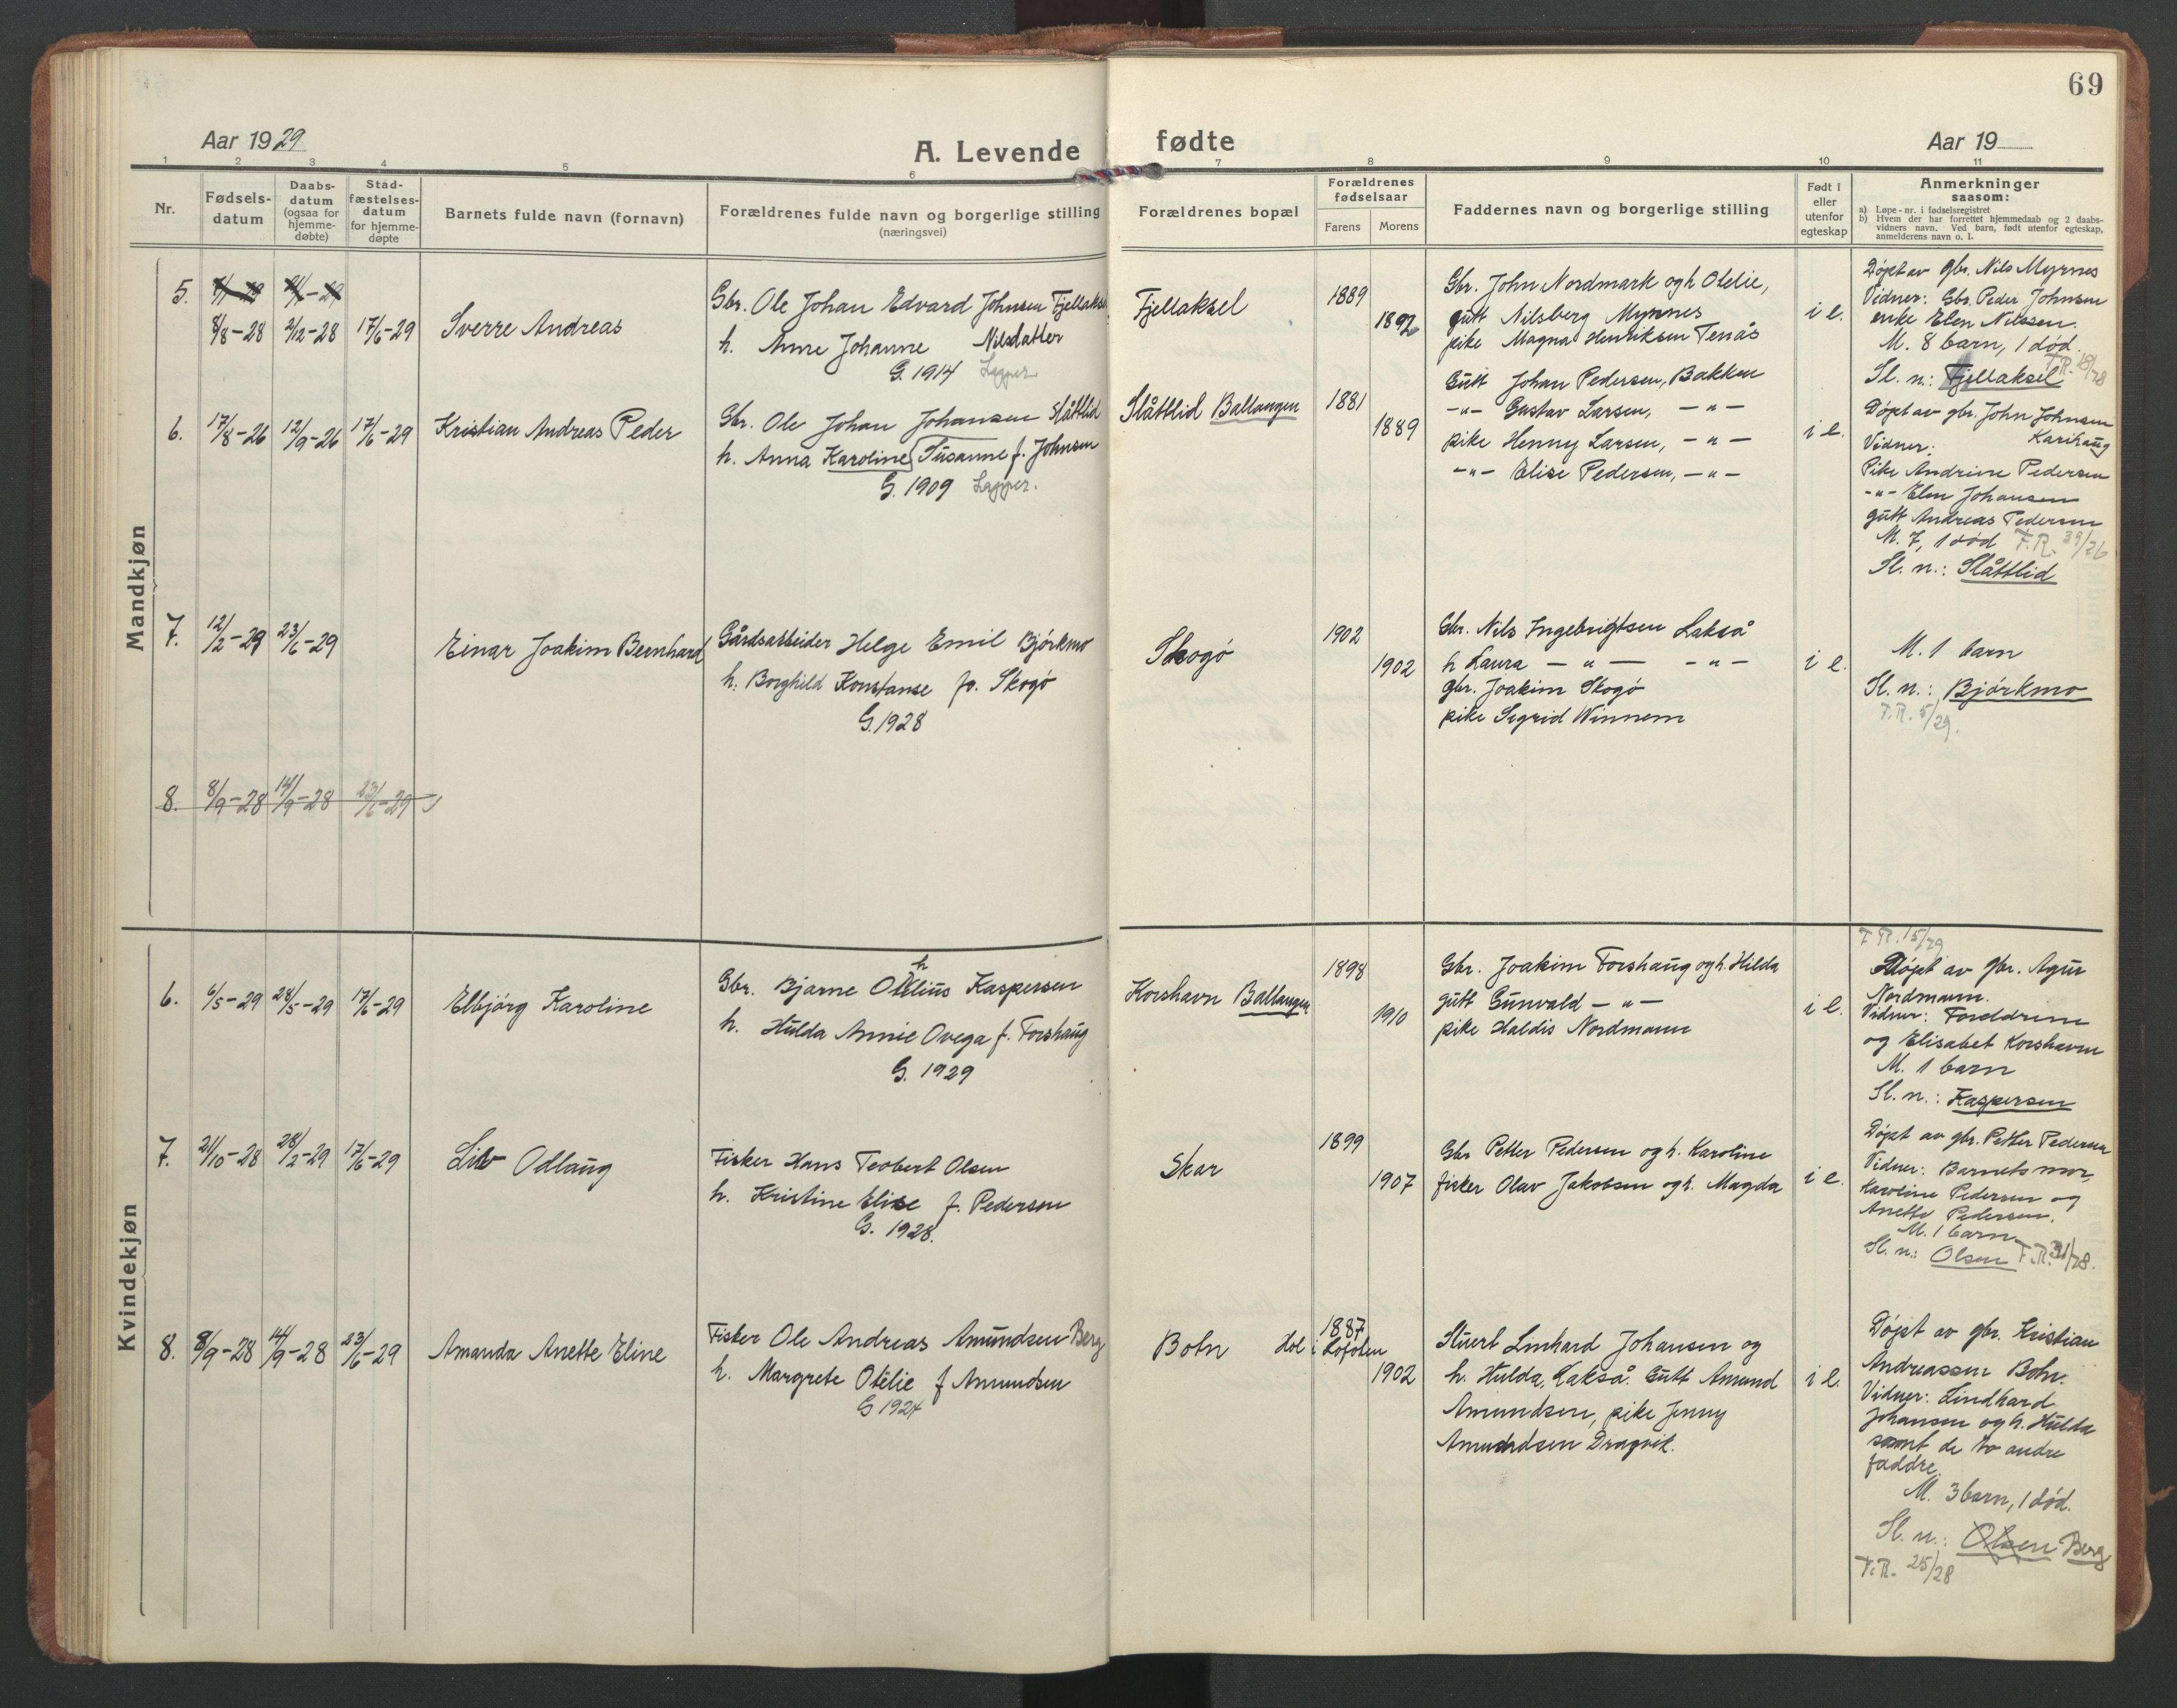 69
Aar 1929
A. Levende
fødte
Aar 19
1 2 3 4 5 6 7 8 9 10 11
Nr.
Fødsels-
datum
Daabs-
datum
(ogsaa for
hjemme-
døbte)
Stad-
fæstelses-
datum
for hjemme-
døpte
Barnets fulde navn (fornavn)
Forældrenes fulde navn og borgerlige stilling
(næringsvei)
Forældrenes bopæl
Forældrenes
fødselsaar
Farens
Morens
Faddernes navn og borgerlige stilling
Født i
eller
utenfor
egteskap
Anmerkninger
saasom:
a) Løpe-nr. i fødselsregistret
b) Hvem der har forrettet hjemmedaab og 2 daabs-
vidners navn. Ved barn, født utenfor egteskap,
anmelderens navn o. l.
Mandkjøn
5.
8/8-28 2/12-28 17/6-29
Sverre Andreas
Gbr. Ole Johan Edvard Johnsen Fjellaksel
h. Anne Johanne Nilsdatter
G. 1914 Lapper.
Fjellaksel
1889
1892
Gbr. John Nordmark og h Otelie,
gutt Nilsberg Myrnes
pike Magna Henriksen Tenås
i e.
Døpt av gbr. Nils Myrnes
Vidner: Gbr. Peder Johnsen
enke Elen Nilssen.
M. 8 barn, 1 død.
F.R. 19/28
Sl. n.: Fjellaksel
6. 17/8-26 12/9-26 17/6-29
Kristian Andreas Peder
Gbr. Ole Johan Johansen Slåttlid
h. Anna Karoline Susanne f. Johnsen
G. 1909 Lapper.
Slåttlid Ballangen
1881
1889
Gutt Johan Pedersen, Bakken
-"- Gustav Larsen, -"-
pike Henny Larsen, -"-
-"- Elise Pedersen, -"-
i e.
Døpt av gbr. John Johnsen
Karihaug
Vidner:
Pike Andrine Pedersen
-"- Elen Johansen
gutt Andreas Pedersen
M. 7, 1 død F.R. 39/26
Sl. n.: Slåttlid
7. 12/2-29 23/6-29
Einar Joakim Bernhard
Gårdsarbeider Helge Emil Bjørkmo
h. Borghild Konstanse fo. Skogø
G. 1928
Skogø
1902
1902
Gbr. Nils Ingebrigtsen Lakså
h Laura -"- -"-
gbr. Joakim Skogø
pike Sigrid Winnem
i e.
M. 1 barn
Sl. n.: Bjørkmo
F.R. 5/29.
8. 8/9-28 14/9-28 23/6-29
Kvindekjøn
6. 6/5-29 28/5-29 17/6-29
Elbjørg Karoline
Gbr. Bjarne Othelius Kaspersen
h. Hulda Annie Ovega f. Forshaug
G. 1929
Korshavn Ballangen
1898
1910
Gbr. Joakim Forshaug og h. Hilda
gutt Gunvald -"-
pike Haldis Nordmann
i e.
F.R. 15/29
Døpt av gbr. Agur
Nordmann.
Vidner: Foreldrene
og Elisabet Korshavn
M. 1 barn
Sl. n.: Kaspersen
7. 21/10-28 28/2-29 17/6-29
Liv Odlaug
Fisker Hans Teobert Olsen
h. Kristine Elise f. Pedersen
G. 1928.
Skar
1899
1907
Gbr Petter Pedersen og h. Karoline
fisker Olav Jakobsen og h. Magda
i e.
Døpt av gbr. Petter Pedersen
Vidner: Barnets mor,
Karoline Pedersen og
Anette Pedersen.
M. 1 barn
Sl. n.: Olsen F.R. 31/28.
8. 8/9-28 14/9-28 23/6-29
Amanda Anette Eline
Fisker Ole Andreas Amundsen Berg
h. Margrete Otelie f Amundsen
G 1924
Botn
Hol i Lofoten
1887
1902
Stuert Linhard Johansen og
h. Hulda, Lakså. Gutt Amund
Amundsen, pike Jenny
Amundsen Dragvik.
i e.
Døpt av gbr. Kristian
Andreassen Botn.
Vidner: Lindhard
Johansen og h. Hulda
samt de to andre
faddre.
M. 3 barn, 1 død.
Sl. n.: Olsen Berg
F.R. 25/28